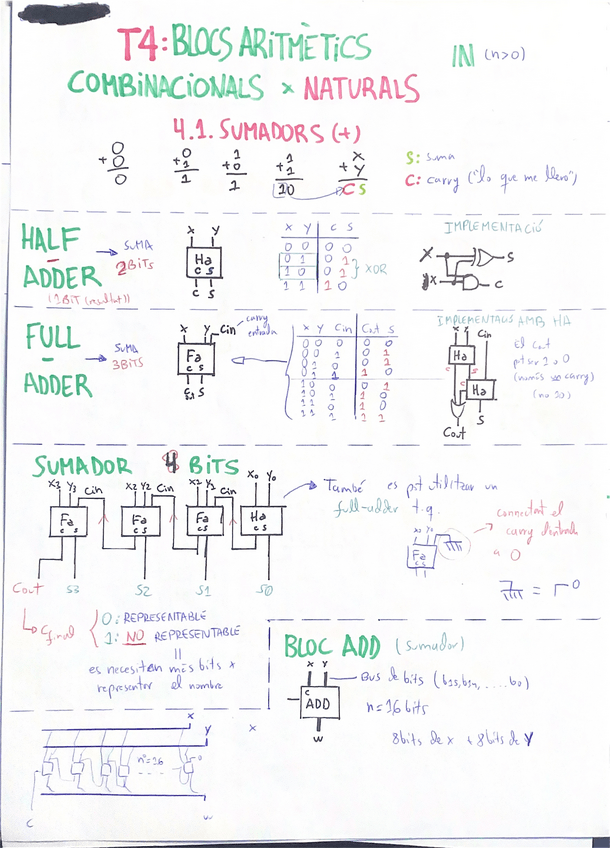 T4: BLOCS ARITMÈTICS
IN (n>0)
COMBINACIONALS x NATURALS
4.1. SUMADORS (+)
0 0 1 1 x
+ 0 + 1 + 0 + 1 + y
0 1 1 10 C S
S: suma
C: carry ("lo que me llevo")
HALF - ADDER
→ SUMA 2 BITS
(1 BIT (resultat))
x y
Ha
c s
C S
x y c s
0 0 0 0
0 1 0 1
1 0 0 1
1 1 1 0
XOR
IMPLEMENTACIÓ
X
S
C
FULL - ADDER
→ SUMA 3 BITS
x y Cin
carry entrada
Fa
c s
x y Cin Cout S
0 0 0 0 0
0 0 1 0 1
IMPLEMENTACIÓ AMB HA
x y Cin
Ha
c s
Ha
Cout S
El cout
pot ser 1 o 0
(només
SUMADOR 4 BITS
X3 Y3 Cin X2 Y2 Cin X1 Y1 Cin X0 Y0
Fa Fa Fa Ha
c s c s c s c s
Cout S3 S2 S1 S0
→ També es pot utilitzar un
full-adder t.q.
X0 Y0
Fa
c s
connectant el
carry d'entrada
a 0
= 0
Cfinal
0: REPRESENTABLE
1: NO REPRESENTABLE
=
es necesiten més bits x
representar el nombre
BLOC ADD (sumador)
x y
Bus de bits
c
ADD
w
n=16 bits
8bits de x + 8bits de y
x
y
x
n=16
0
c
w